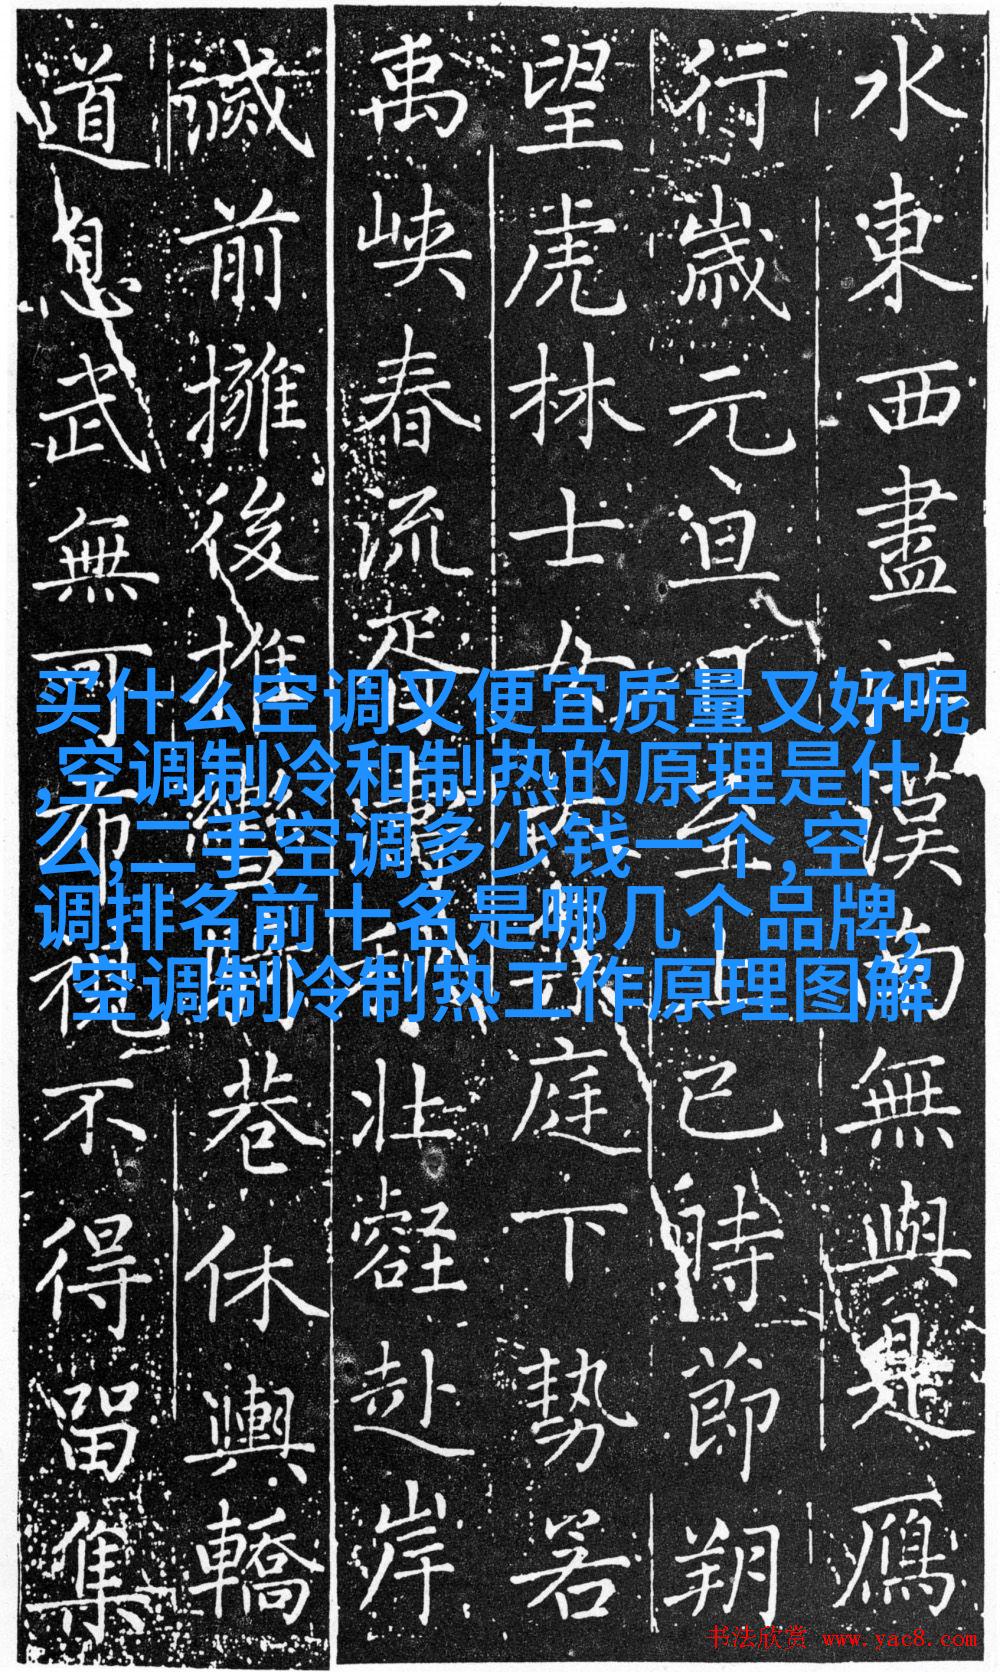 水東西盡漢無與是鴈
行歲元旦日至上巳時節朔
望虎林士女庭下勢若
禹峽春流胥濤秋壯壑赴岸
前擁後推巷休輿轎
道息武無可布不得留集
买什么空调又便宜质量又好呢
,空调制冷和制热的原理是什
么,二手空调多少钱一个,空
调排名前十名是哪几个品牌,
空调制冷制热工作原理图解
书法欣赏 www.yac8.com